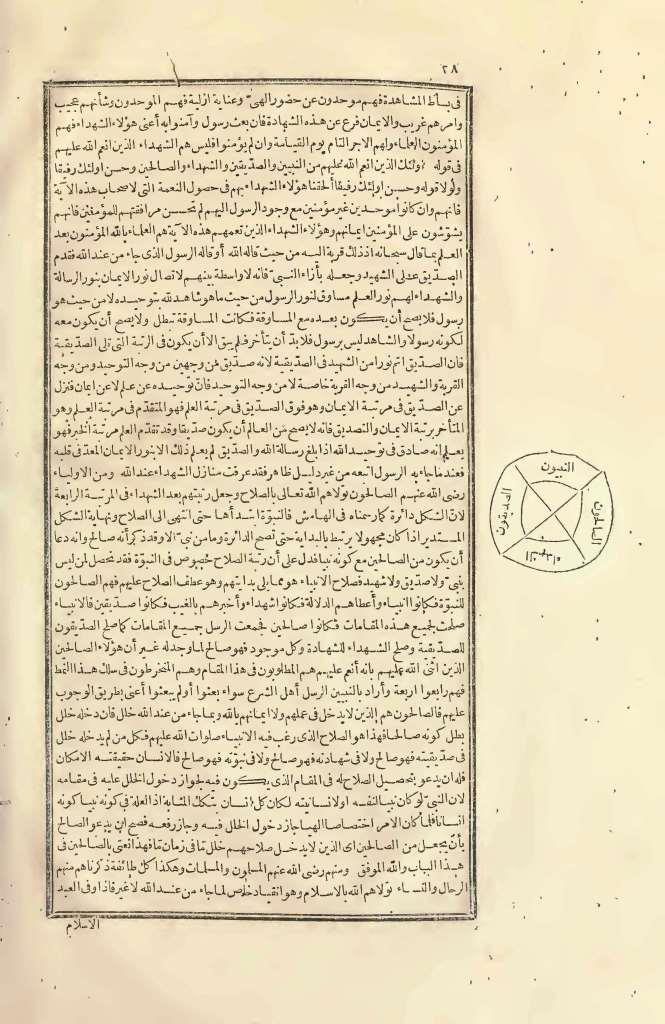 ٢٨
في بساط المشاهدة فهم موحدون عن حضور الهيّ وعناية ازلية فهم الموحدون وشأنهم عجيب
وامرهم غريب والايمان فرع عن هذه الشهادة فان بعث رسول وآمنوا به أعني هؤلاء الشهداء فهم
المؤمنون العلماء ولهم الاجر التام يوم القيامة وان لم يؤمنوا فليس هم الشهداء الذين انعم الله عليهم
في قوله اولئك الذين انعم الله عليهم من النبيين والصدّيقين والشهداء والصالحين وحسن اولئك رفيقا
ولولا قوله وحسن اولئك رفيقا ألحقنا هؤلاء الشهداء بهم في حصول النعمة التي لاصحاب هذه الآية
فانهم وان كانوا موحدين غير مؤمنين مع وجود الرسول اليهم لم تحسن مرافقتهم للمؤمنين فانهم
يشوّشون على المؤمنين ايمانهم وهؤلاء الشهداء الذين تعمهم هذه الآية هم العلماء بالله المؤمنون بعد
العلم بما قال سبحانه ان ذلك قربة اليه من حيث قاله الله أو قاله الرسول الذي جاء من عند الله فقدم
الصدّيق على الشهيد وجعله بأزاء النبيّ فانه لا واسطة بينهم لاتصال نور الايمان بنور الرسالة
والشهداء لهم نور العلم مساوق لنور الرسول من حيث ما هو شاهد لله بتوحيده لا من حيث هو
رسول فلا يصح أن يكون بعده مع المساوقة فكانت المساوقة تبطل ولا يصح أن يكون معه
لكونه رسولا والشاهد ليس برسول فلا بد أن يتأخر فلم يبق الا أن يكون في الرتبة التي تلي الصديقية
فان الصديق اتم نورا من الشهيد في الصديقية لانه صديق من وجهين من وجه التوحيد ومن وجه
القربة والشهيد من وجه القربة خاصة لا من وجه التوحيد فان توحيده عن علم لا عن ايمان فنزل
عن الصدّيق في مرتبة الايمان وهو فوق الصدّيق في مرتبة العلم فهو المتقدّم في مرتبة العلم وهو
المتأخر برتبة الايمان والتصديق فانه لا يصح من العالم أن يكون صديقا وقد تقدم العلم مرتبة الخبر فهو
يعلم انه صادق في توحيد الله اذا بلغ رسالة الله والصديق لم يعلم ذلك الا بنور الايمان المعدّ في قلبه
فعندما جاء به الرسول اتبعه من غير دليل ظاهر فقد عرفت منازل الشهداء عند الله ومن الاولياء
رضى الله عنهم الصالحون تولاهم الله تعالى بالصلاح وجعل رتبتهم بعد الشهداء في المرتبة الرابعة
لانّ الشكل دائرة كما رسمناه في الهامش فالنبوّة ابتدأها حتى انتهى الى الصلاح ونهاية الشكل
المستدير اذا كان مجهولا يرتبط بالبداية حتى تصح الدائرة وما من نبيّ الا وقد ذكر أنه صالح وانه دعا
أن يكون من الصالحين مع كونه نبيا فدل على أن رتبة الصلاح خصوص في النبوّة فقد تحصل لمن ليس
بنبيّ ولا صديق ولا شهيد فصلاح الانبياء هو مما يلي بدايتهم وهو عطف الصلاح عليهم فهم الصالحون
للنبوّة فكانوا انبياء وأعطاهم الدلالة فكانوا شهداء وأخبرهم بالغيب فكانوا صدّيقين فالانبياء
صلحت لجميع هذه المقامات فكانوا صالحين فجمعت الرسل جميع المقامات كما صلح الصدّيقون
للصدّيقية وصلح الشهداء للشهادة وكل موجود فهو صالح لما وجد له غير أن هؤلاء الصالحين
الذين اثنى الله عليهم بانه أنعم عليهم هم المطلوبون في هذا المقام وهم المنخرطون في سلك هذا النمط
فهم رابعوا اربعة وأراد بالنبيين الرسل أهل الشرع سواء بعثوا أو لم يبعثوا أعني بطريق الوجوب
عليهم فالصالحون هم الذين لا يدخل في عملهم ولا ايمانهم بالله وبما جاء من عند الله خلل فان دخله خلل
بطل كونه صالحا فهذا هو الصلاح الذي رغب فيه الانبياء صلوات الله عليهم فكل من لم يدخله خلل
في صدّيقيته فهو صالح ولا في شهادته فهو صالح ولا في نبوّته فهو صالح فالانسان حقيقته الامكان
فله ان يدعو بتحصيل الصلاح له في المقام الذي يكون فيه لجواز دخول الخلل عليه في مقامه
لان النبيّ لو كان نبيا لنفسه او لانسانيته لكان كل انسان بتلك المثابة اذ العلة في كونه نبيا كونه
انسانا فلما كان الامر اختصاصا الهيا جاز دخول الخلل فيه وجاز رفعه فصح ان يدعو الصالح
بأن يجعل من الصالحين اى الذين لا يدخل صلاحهم خلل ما في زمان ما فهذا نعني بالصالحين في
هذا الباب والله الموفق ومنهم رضى الله عنهم المسلمون والمسلمات وهكذا كل طائفة ذكرناهم منهم
الرجال والنساء تولاهم الله بالاسلام وهو انقياد خاص لما جاء من عند الله لا غير فاذا وفى العبد
الاسلام
النبيون
الصديقون
الشهداء
الصالحون